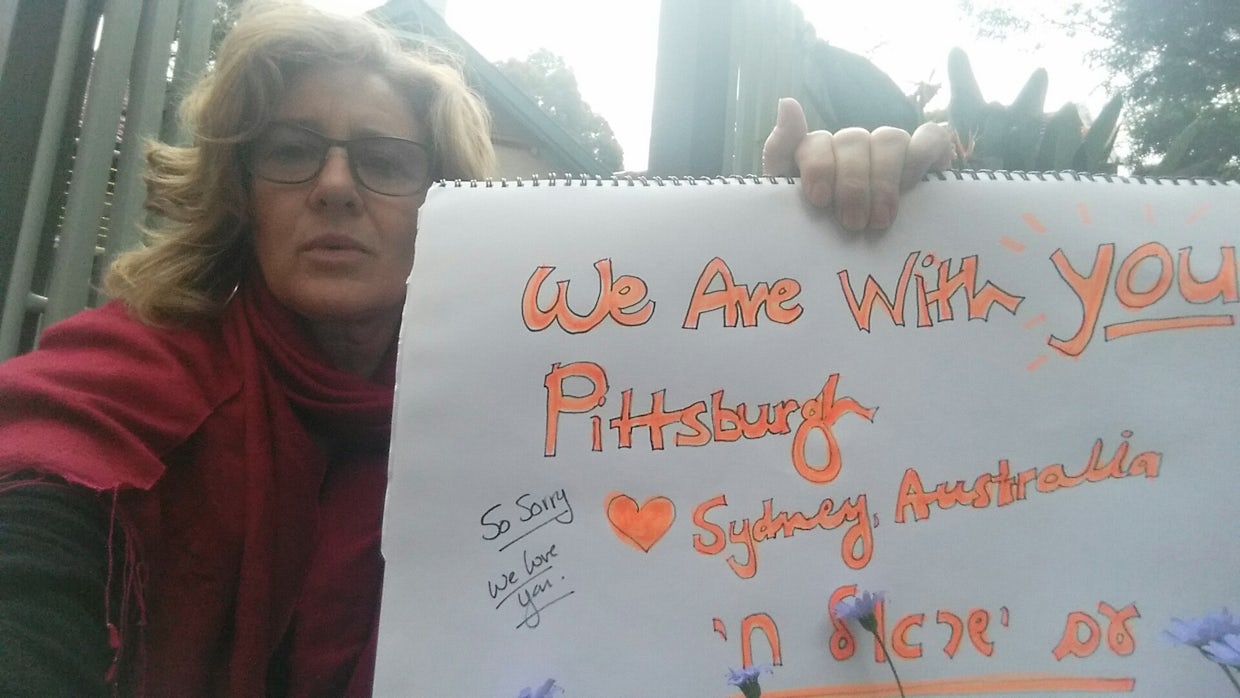 We Are With you
Pittsburgh
So Sorry
we love
you.
♥ Sydney, Australia
עם ישראל חי